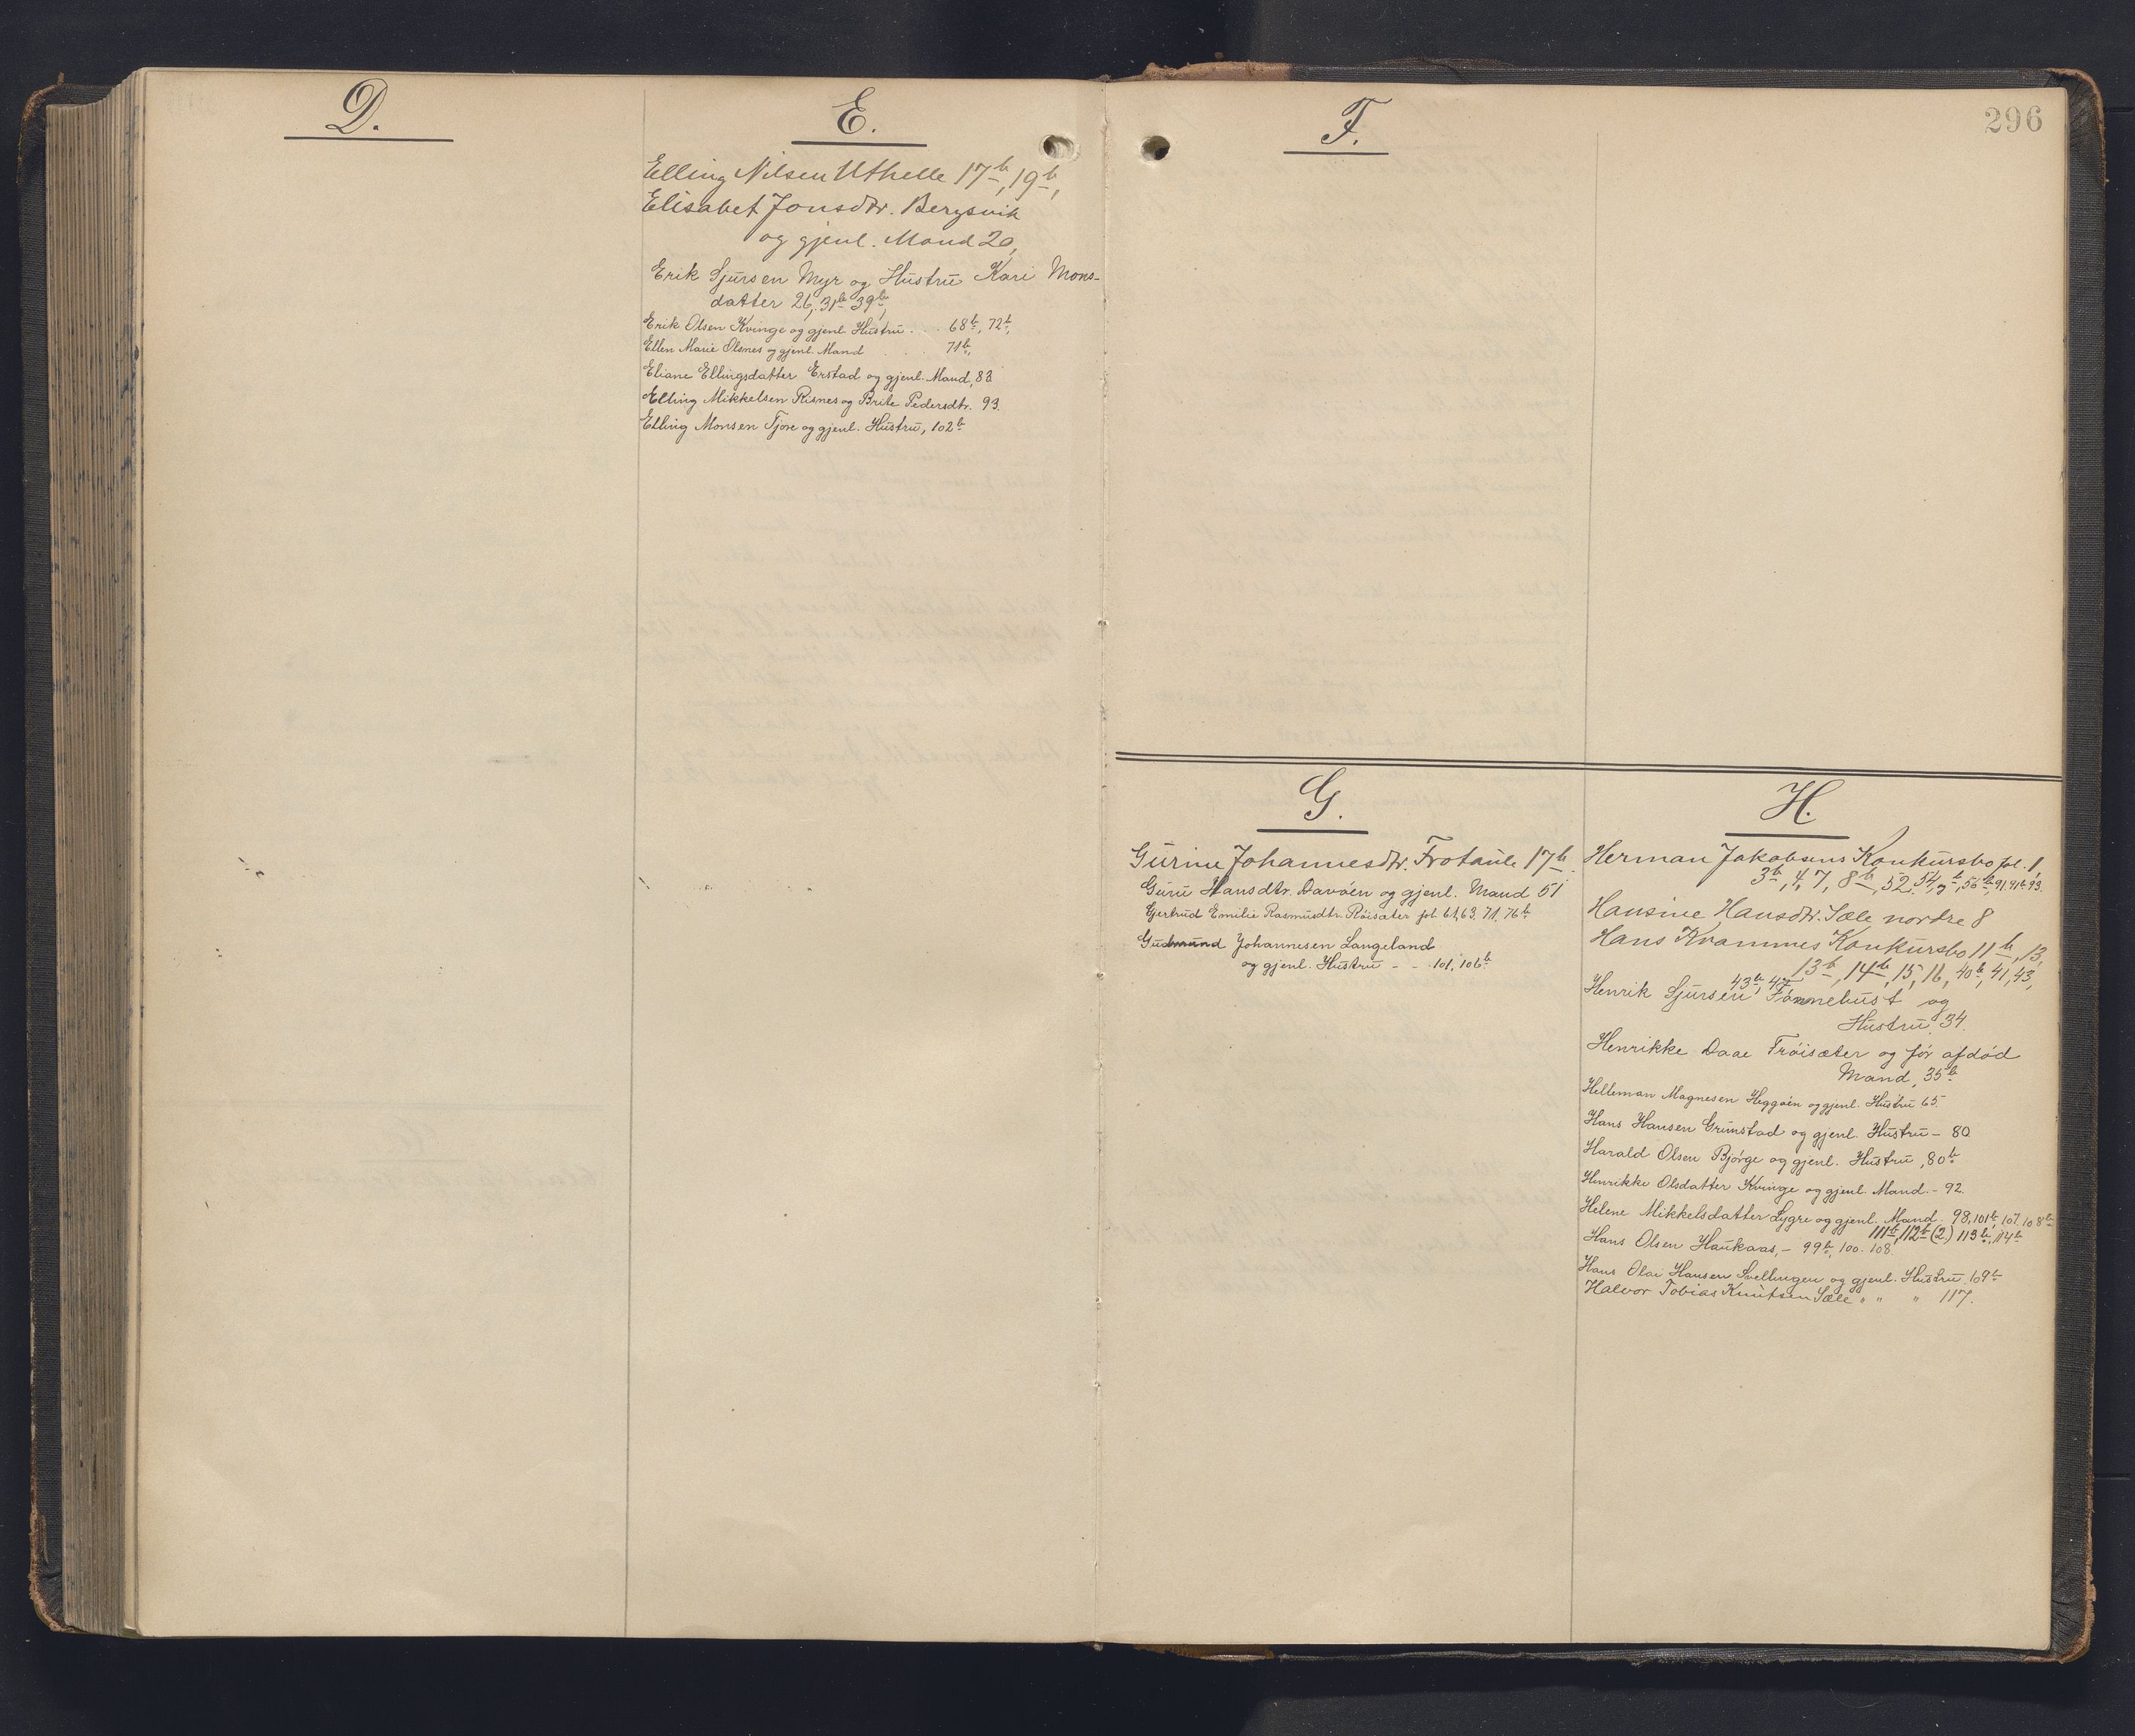 D.
E.
Elling Nilsen Uthelle 17b, 19b,
Elisabet Jonsdtr. Bergsvik
og gjenl. Mand 20,
Erik Sjursen Myr og Hustru Kari Mons-
datter 26, 31b 39b,
Erik Olsen Kvinge og gjenl Hustru . . . 68b, 72b,
Ellen Marie Olsnes og gjenl. Mand . . . 71b,
Eliane Ellingsdatter Erstad og gjenl. Mand, 83
Elling Mikkelsen Risnes og Brite Pedersdtr. 93.
Elling Monsen Tjore og gjenl. Hustru, 102b
296
F.
G.
Gurine Johannesdtr. Frotaule 17b.
Guru Hansdtr. Davøen og gjenl. Mand 51
Gjertrud Emilie Rasmusdtr. Röisæter fol. 61, 63, 71, 76b
Gudmund Johannesen Langeland
og gjenl. Hustru - - 101, 106b
H.
Herman Jakobsens Konkursbo fol. 1,
3b, 4, 7, 8b, 52, 54, 91, 91b, 93.
Hansine Hansdtr. Sæle nordre 8
Hans Kvammes Konkursbo 11b, 13,
13b, 14b, 15, 16, 40b, 41, 43,
43b, 47
Henrik Sjursen Fonnebust og
Hustru, 34.
Henrikke Daae Fröisæter og før afdød
Mand, 35b
Helleman Magnesen Heggøen og gjenl. Hustru 65.
Hans Hansen Grimstad og gjenl. Hustru - 80
Harald Olsen Bjørge og gjenl. Hustru, 80b
Henrikke Olsdatter Kvinge og gjenl. Mand. - 92.
Helene Mikkelsdatter Lygre og gjenl. Mand. 98, 101b, 107, 108b
111b, 112b (2) 113b, 114b
Hans Olsen Haukaas, - 99b, 100. 108.
Hans Olai Hansen Svellingen og gjenl. Hustru 109b
Halvor Tobias Knutsen Sæle " " " 117.